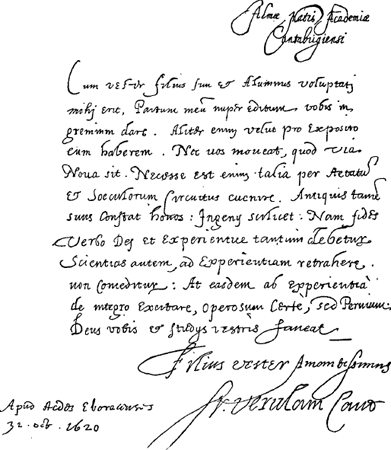 Almæ Matri Academiæ
Cantabrigiensi
Cum vester filius sim et Alumnus voluptati
mihi erit, Partum meū nuper editum vobis in
gremium dare. Aliter enim velut pro Exposito
eum haberem. Nec vos moveat, quod via
Nova sit. Necesse est enim talia per Ætatū
et Sæculorum Circuitus evenire. Antiquis tamē
suus Constat honos: Ingenij scilicet: Nam fides
Verbo Dei et Experientiæ tantum debetur
Scientias autem, ad Experientiam retrahere
non conceditur: At easdem ab experientiâ
de integro Excitare, operosum Certe, sed Pervium:
Deus vobis et studijs vestris faveat
Filius vester Amantissimus
Fr. Verulam Canc
Apud Ædes Eboracenses
31. oct. 1620